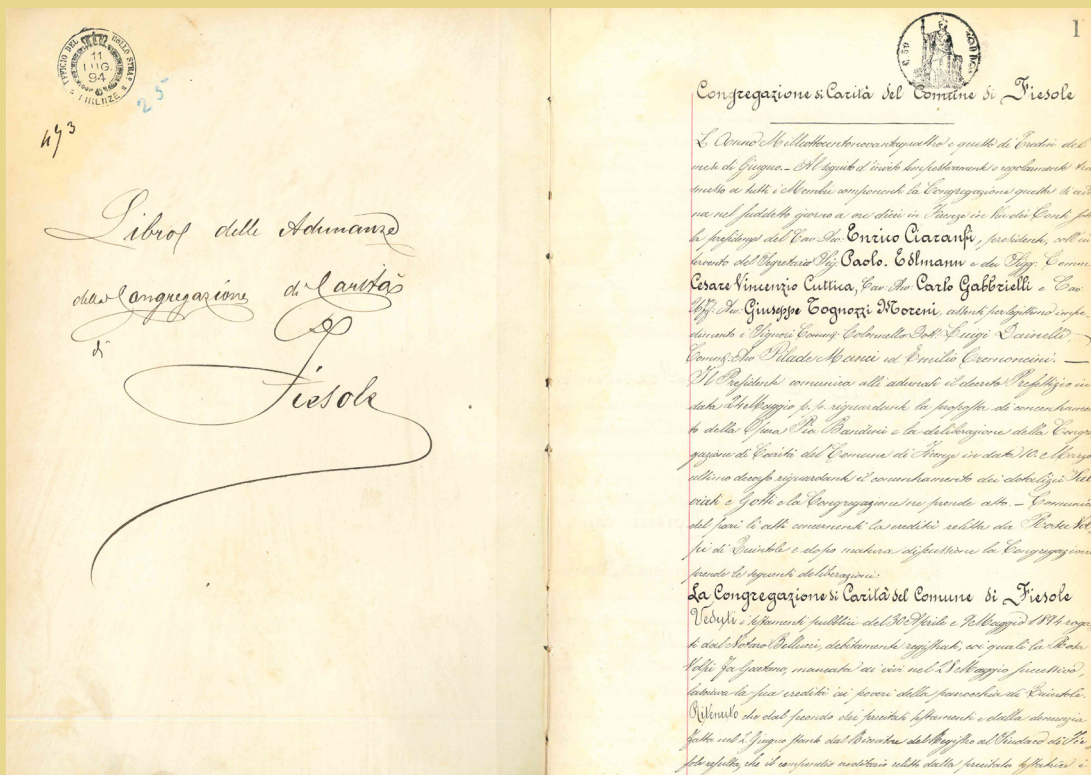 UFFICIO DEL BOLLO STRAO
11
LUG.
94
FIRENZE
25
473
Libro delle Adunanze
della Congregazione di Carità
di
Fiesole
1
Congregazione di Carità del Comune di Fiesole
L'Anno Milleottocentonovantaquattro e questo dì Tredici del
mese di Giugno. – Al seguito d'invito tempestivamente e regolarmente
a tutti i Membri componenti la Congregazione questa si è
na nel suddetto giorno a ore dieci in Firenze in Via dei Conti
la presidenza del Cav. Avv. Enrico Ciaranfi, presidente, coll'in
tervento del Segretario Sig. Paolo. Edlmann e dei Sigg. Comm.
Cesare Vincenzio Cuttica, Cav. Avv. Carlo Gabbrielli e Cav.
Uff. Avv. Giuseppe Tognozzi Moreni, assenti per legittimo impe
dimento i Signori Comm. Colonnello Dott. Luigi Dainelli,
Comm. Avv. Pilade Manci ed Emilio Cremoncini. —
Il Presidente comunica alli adunati il decreto Prefettizio in
data 24 Maggio p. p. riguardante la proposta di concentramen
to della Opera Pia Bandini e la deliberazione della Congre
gazione di Carità del Comune di Firenze in data 10 Marzo
ultimo decorso riguardante il concentramento dei dotalizi
e Gotti e la Congregazione ne prende atto. – Comunica
del pari li atti concernenti la eredità relitta da Rosa Vol
pi di Quintole e dopo matura discussione la Congregazione
prende le seguenti deliberazioni:
La Congregazione di Carità del Comune di Fiesole
Veduti i testamenti pubblici del 30 Aprile e 9 Maggio 1894 roga
ti dal Notaro Bellucci, debitamente registrati, coi quali la Rosa
Volpi fu Gaetano, mancata ai vivi nel 28 Maggio successivo,
lasciava la sua eredità ai poveri della parrocchia di Quintole.
Ritenuto che dal secondo dei precitati testamenti e dalla denunzia
fatta nel 2 Giugno stante dal Ricevitore del Registro al Sindaco di Fie
sole resulta, che il compendio ereditario relitto dalla precitata testatrice è